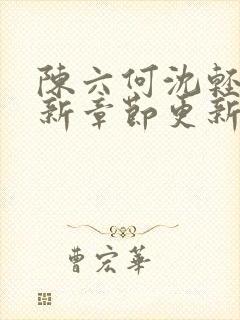 陳六何沈輕
新章節更新
曹宏華